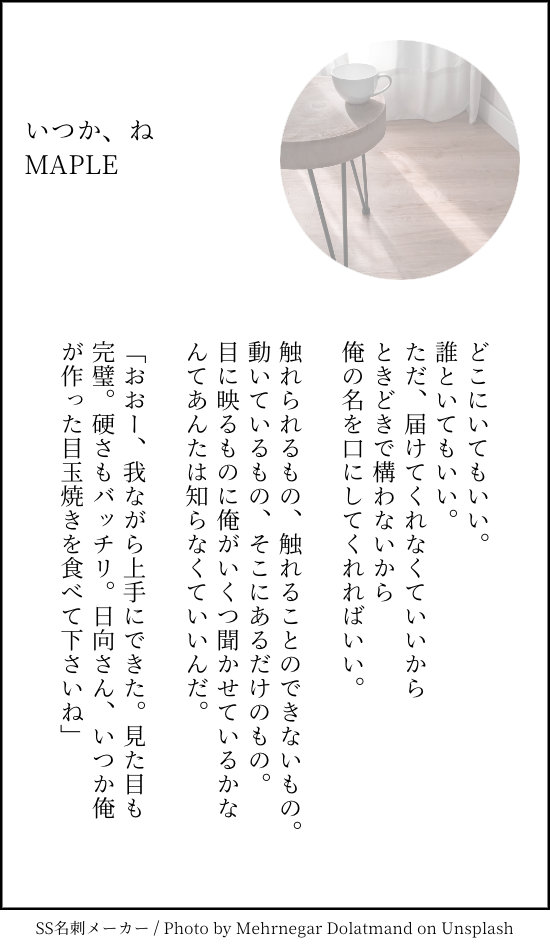 いつか、ね
MAPLE
どこにいてもいい。
誰といてもいい。
ただ、届けてくれなくていいから
ときどきで構わないから
俺の名を口にしてくれればいい。
触れられるもの、触れることのできないもの。
動いているもの、そこにあるだけのもの。
目に映るものに俺がいくつ聞かせているかな
んてあんたは知らなくていいんだ。
「おおー、我ながら上手にできた。見た目も
完璧。硬さもバッチリ。日向さん、いつか俺
が作った目玉焼きを食べて下さいね」
SS名刺メーカー / Photo by Mehrnegar Dolatmand on Unsplash